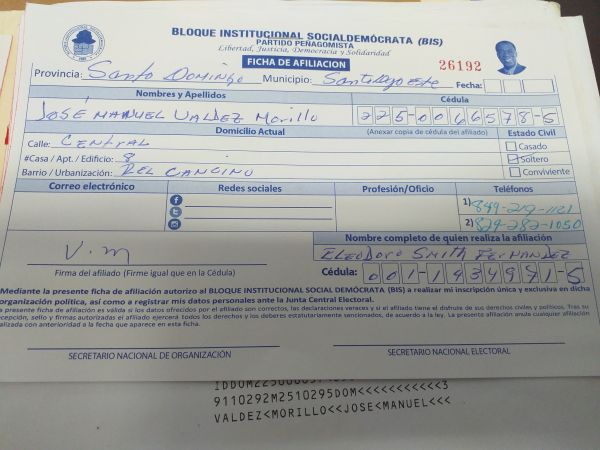 BLOQUE INSTITUCIONAL SOCIALDEMÓCRATA (BIS)
PARTIDO PENAGOMISTA
Libertad, Justicia, Democracia y Solidaridad
FICHA DE AFILIACION
26192
Provincia: Santo Domingo Municipio: Santo Dgo este Fecha:
Nombres y Apellidos Cédula
José manuel Valdez Morillo 225-0066578-5
Domicilio Actual (Anexar copia de cédula del afiliado) Estado Civil
Calle: Central Casado
#Casa / Apt. / Edificio: 8 Soltero
Barrio / Urbanización: Del Cancino Conviviente
Correo electrónico Redes sociales Profesión/Oficio Teléfonos
1) 849-219-1121
2) 829-282-1050
Nombre completo de quien realiza la afiliación
V.m Eleodoro Smith Fernandez
Firma del afiliado (Firme igual que en la Cédula) Cédula: 001-1434991-5
Mediante la presente ficha de afiliación autorizo al BLOQUE INSTITUCIONAL SOCIAL DEMÓCRATA (BIS) a realizar mi inscripción única y exclusiva en dicha
organización política, así como a registrar mis datos personales ante la Junta Central Electoral.
a presente ficha de afiliación es válida si los datos ofrecidos por el afiliado son correctos, las declaraciones veraces y si el afiliado tiene el disfrute de sus derechos civiles y políticos. Tras su
cepción, sello y firmas autorizadas el afiliado ejercera todos los derechos y los deberes estatutariamente sancionados, de acuerdo a la ley. La presente afiliación anula cualquier afiliación
alizada con anterioridad a la fecha que aparece en esta ficha.
SECRETARIO NACIONAL DE ORGANIZACIÓN SECRETARIO NACIONAL ELECTORAL
9110292M2510295DOM<<<<<<<<<<<3
VALDEZ<MORILLO<<JOSE<MANUEL<<<